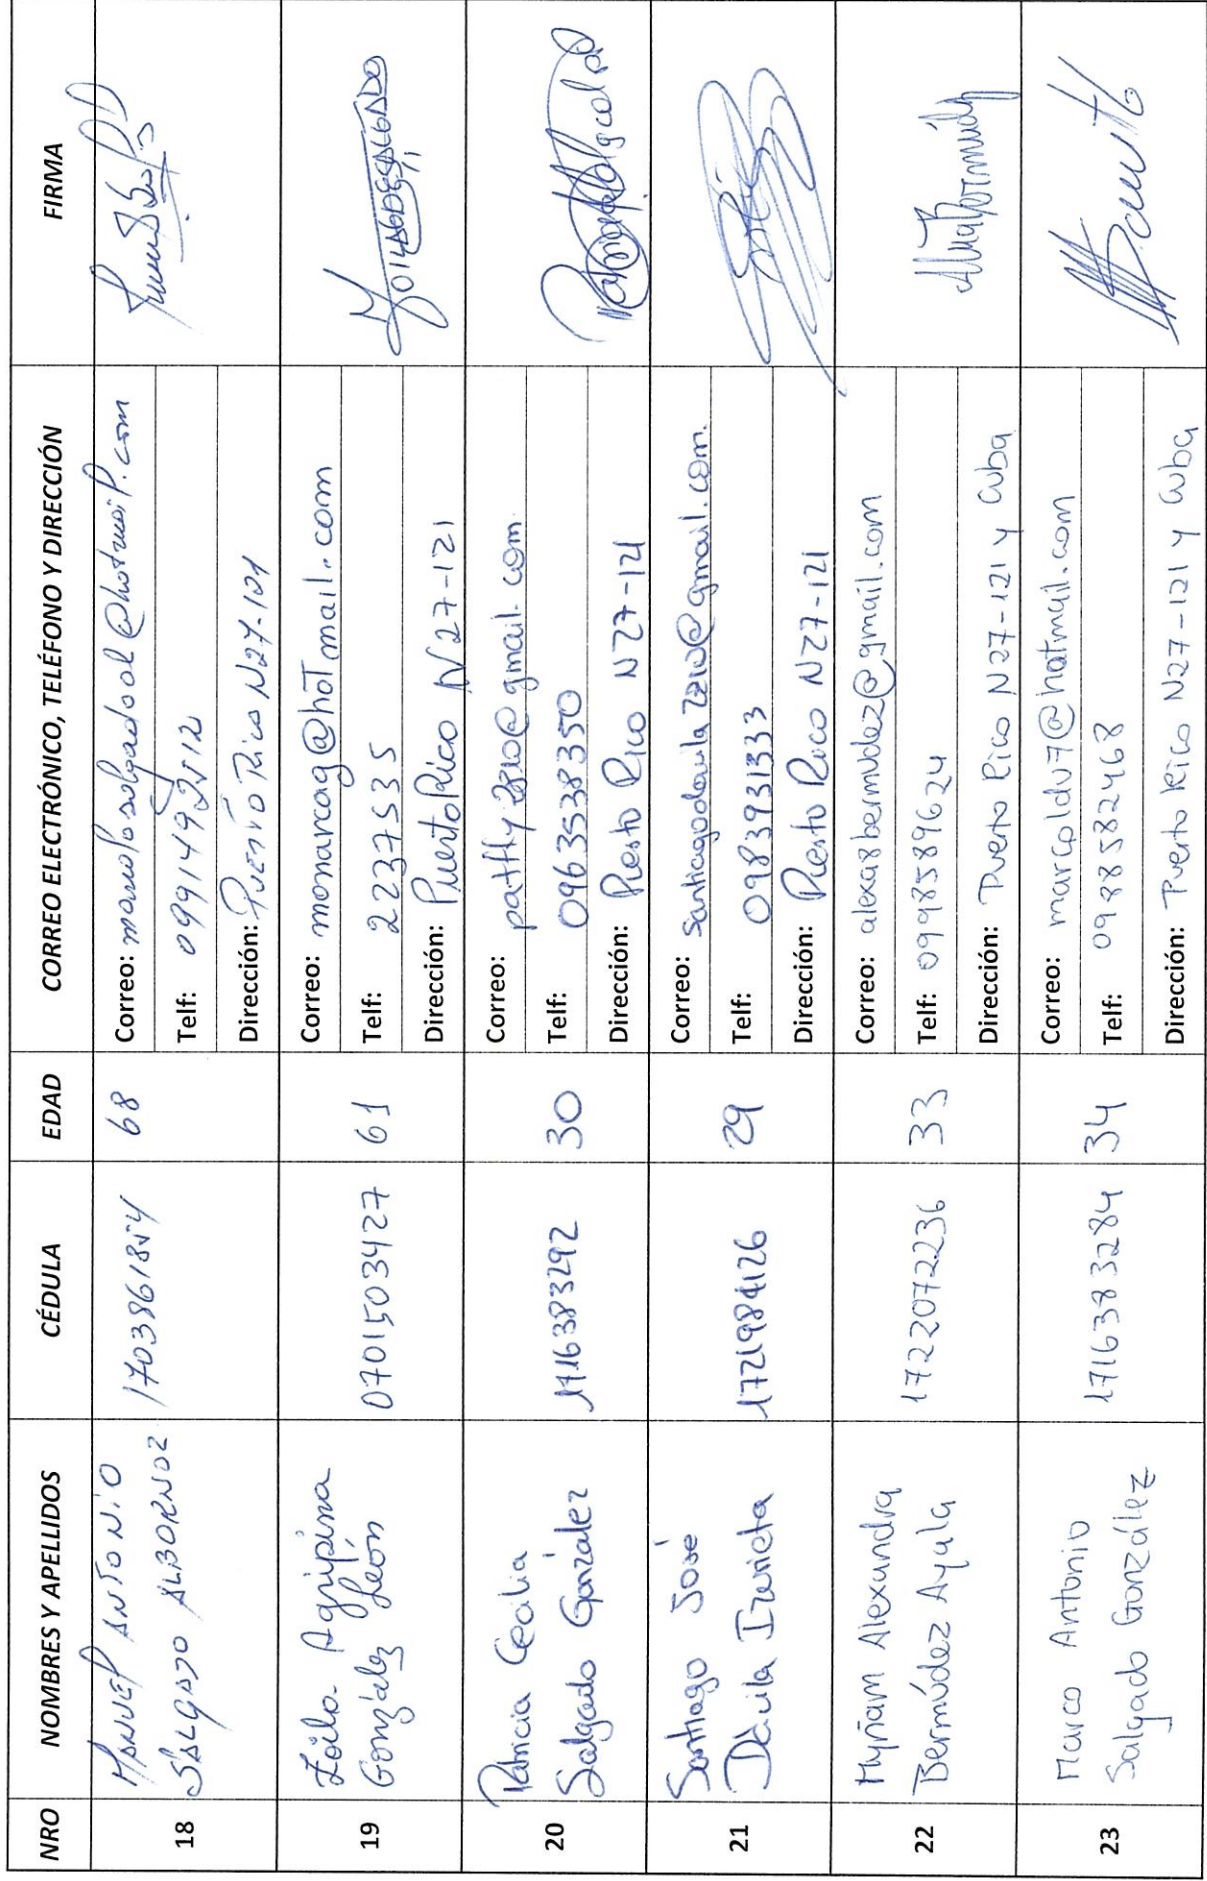 NRO NOMBRES Y APELLIDOS CÉDULA EDAD CORREO ELECTRÓNICO, TELÉFONO Y DIRECCIÓN FIRMA
18
MANUEL ANTONIO
SALGADO ALBORNOZ
1703861854
68
Correo: manolosalgadoal@hotmail.com
Telf: 0991492512
Dirección: Puerto Rico N27-121
19
Zoila Agripina
González León
0701503427
61
Correo: monarcag@hotmail.com
Telf: 2237535
Dirección: Puerto Rico N27-121
20
Patricia Cecilia
Salgado González
1716383292
30
Correo: @gmail.com
Telf: 0963538350
Dirección: Puerto Rico N27-121
21
Santiago José
Dávila Izurieta
1721984126
29
Correo: @gmail.com
Telf: 0983931333
Dirección: Puerto Rico N27-121
22
Myriam Alexandra
Bermúdez Ayala
1722072236
33
Correo: alexa8bermudez@gmail.com
Telf: 0998589624
Dirección: Puerto Rico N27-121 y Cuba
23
Marco Antonio
Salgado González
1716383284
34
Correo: marcoldu7@hotmail.com
Telf: 0988582468
Dirección: Puerto Rico N27-121 y Cuba